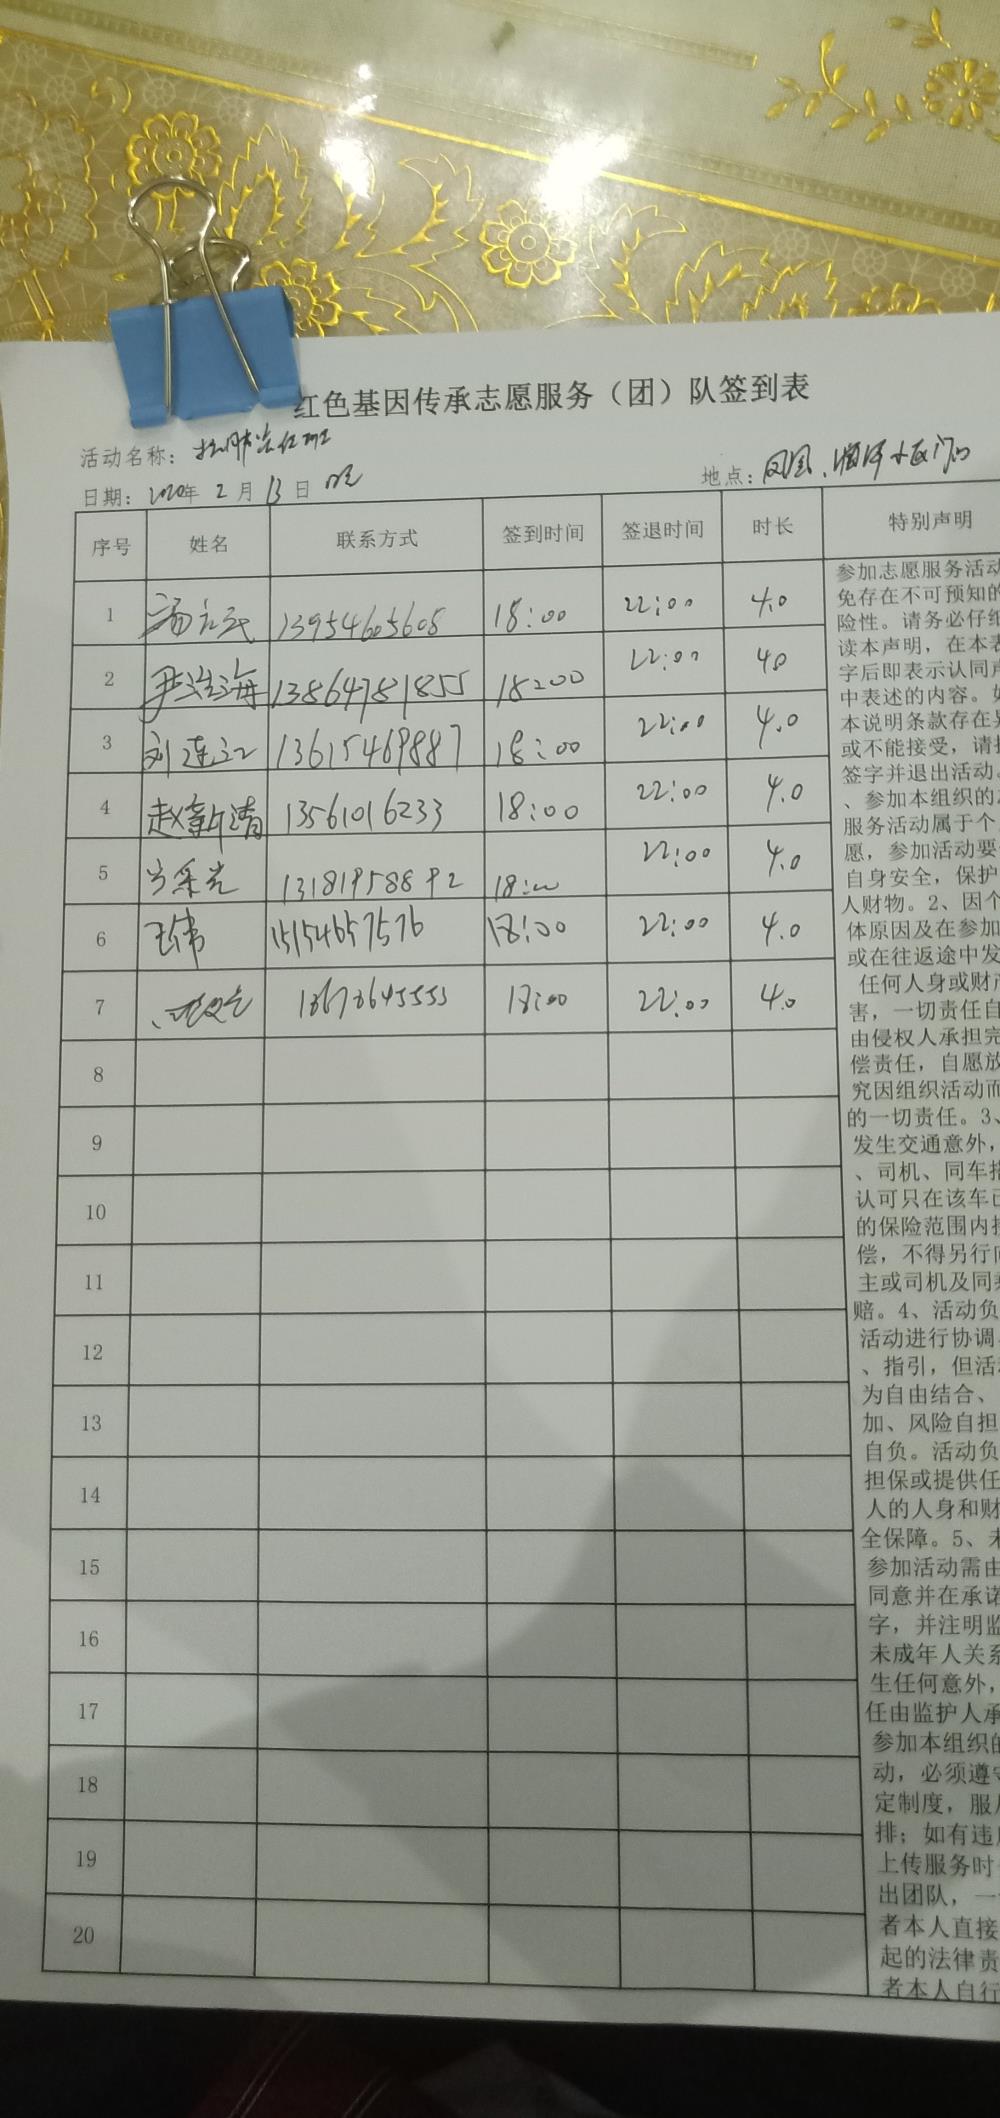 红色基因传承志愿服务（团）队签到表
活动名称：
日期：2020年 2 月 13 日 晚
地点：凤凰、
序号 姓名 联系方式 签到时间 签退时间 时长 特别声明
1 13954605608 18:00 22:00 4.0
2 尹海 13864781855 18:00 22:00 4.0
3 刘连江 13615469887 18:00 22:00 4.0
4 赵新清 13561016233 18:00 22:00 4.0
5 18:00 22:00 4.0
6 王伟 15154657576 18:00 22:00 4.0
7 18:00 22:00 4.0
8
9
10
11
12
13
14
15
16
17
18
19
20
参加志愿服务活动
免存在不可预知的
险性。请务必仔细
读本声明，在本表
字后即表示认同声
中表述的内容。如
本说明条款存在异
或不能接受，请拒
签字并退出活动。
、参加本组织的志
服务活动属于个
愿，参加活动要
自身安全，保护
人财物。2、因个
体原因及在参加
或在往返途中发
任何人身或财产
害，一切责任自
由侵权人承担完
偿责任，自愿放
究因组织活动而
的一切责任。3、
发生交通意外，
、司机、同车搭
认可只在该车已
的保险范围内
偿，不得另行向
主或司机及同乘
赔。4、活动负
活动进行协调
、指引，但活动
为自由结合、
加、风险自担
自负。活动负
担保或提供任
人的人身和财
全保障。5、未
参加活动需由
同意并在承诺
字，并注明监
未成年人关系
生任何意外，
任由监护人承
参加本组织的
动，必须遵守
定制度，服从
排；如有违
上传服务时
出团队，一
者本人直接
起的法律责
者本人自行